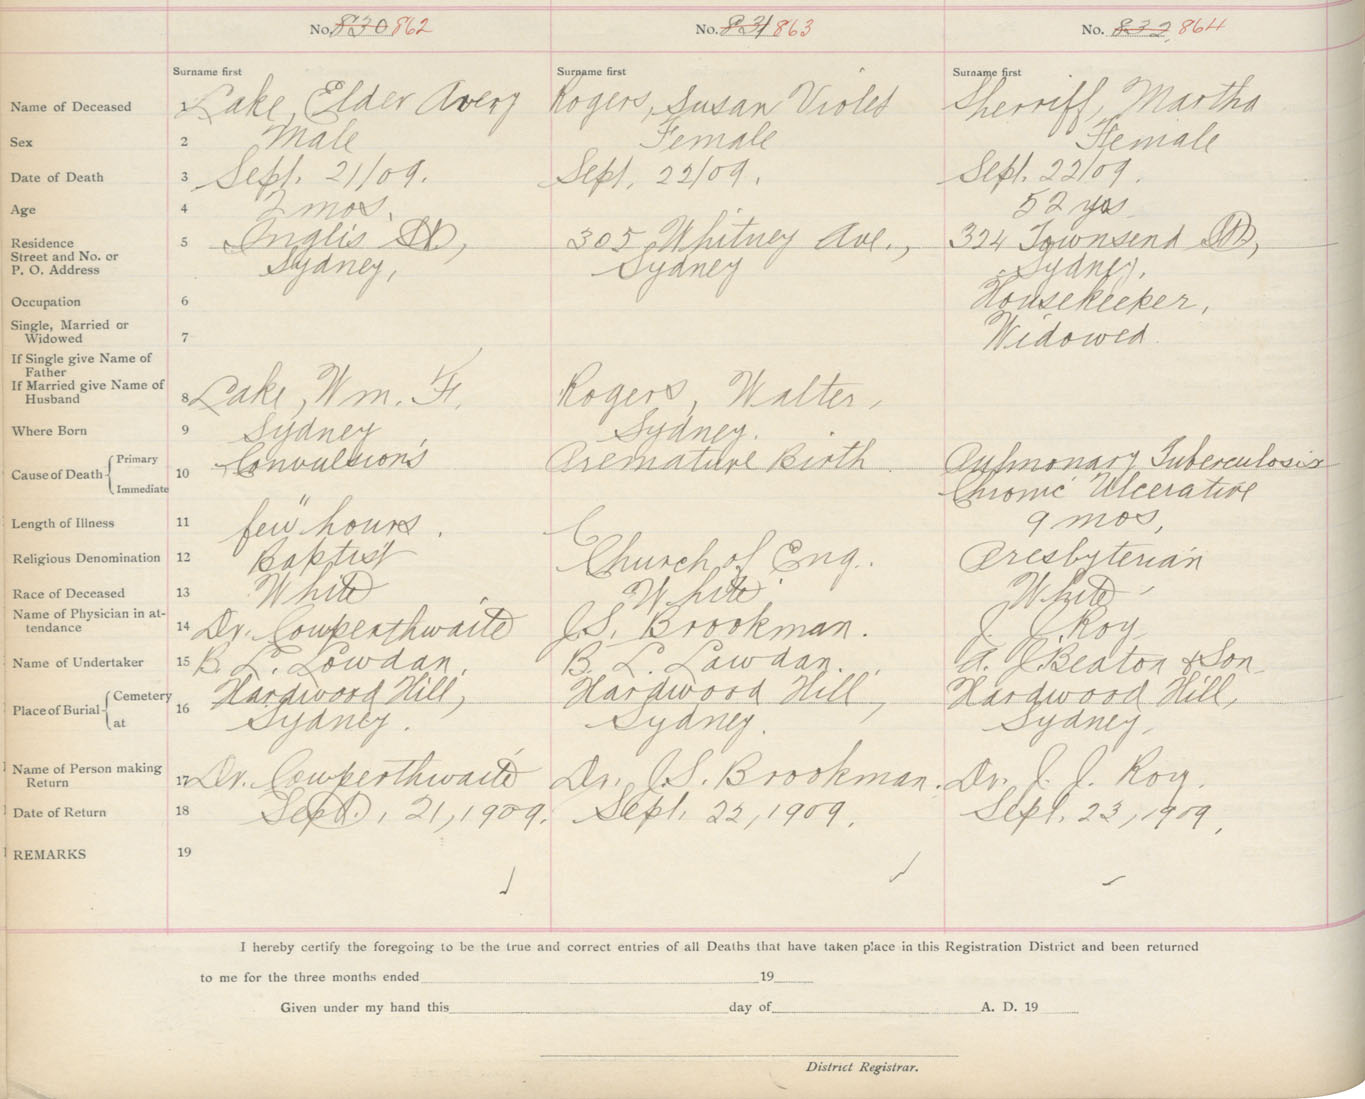 No. 830 862 No. 831 863 No. 832 864
Surname first Surname first Surname first
Name of Deceased 1 Lake, Elder Avery Rogers, Susan Violet Sherriff, Martha
Sex 2 Male Female Female
Date of Death 3 Sept. 21/09. Sept. 22/09. Sept. 22/09.
Age 4 2 mos. 52 yrs
Residence 5 Inglis St., 305 Whitney Ave., 324 Townsend St.,
Street and No. or
P. O. Address Sydney, Sydney Sydney.
Occupation 6 Housekeeper,
Single, Married or
Widowed 7 Widowed.
If Single give Name of
Father
If Married give Name of
Husband 8 Lake, Wm. F. Rogers, Walter,
Where Born 9 Sydney Sydney.
Cause of Death Primary 10 Convulsions Premature Birth. Pulmonary Tuberculosis
Immediate Chronic Ulcerative
Length of Illness 11 few hours. 9 mos,
Religious Denomination 12 Baptist Church of Eng. Presbyterian
Race of Deceased 13 White White White
Name of Physician in at-
tendance 14 Dr. Cowperthwaite J.S. Brookman. J. J. Roy
Name of Undertaker 15 B. L. Lowdan. B. L. Lawdan. A. J. Beaton & Son
Place of Burial Cemetery 16 Hardwood Hill, Hardwood Hill, Hardwood Hill,
at Sydney. Sydney. Sydney,
Name of Person making
Return 17 Dr. Cowperthwaite Dr. J.S. Brookman. Dr. J. J. Roy.
Date of Return 18 Sept. 21, 1909. Sept. 22, 1909. Sept. 23, 1909.
REMARKS 19
I hereby certify the foregoing to be the true and correct entries of all Deaths that have taken place in this Registration District and been returned
to me for the three months ended 19
Given under my hand this day of A. D. 19
District Registrar.